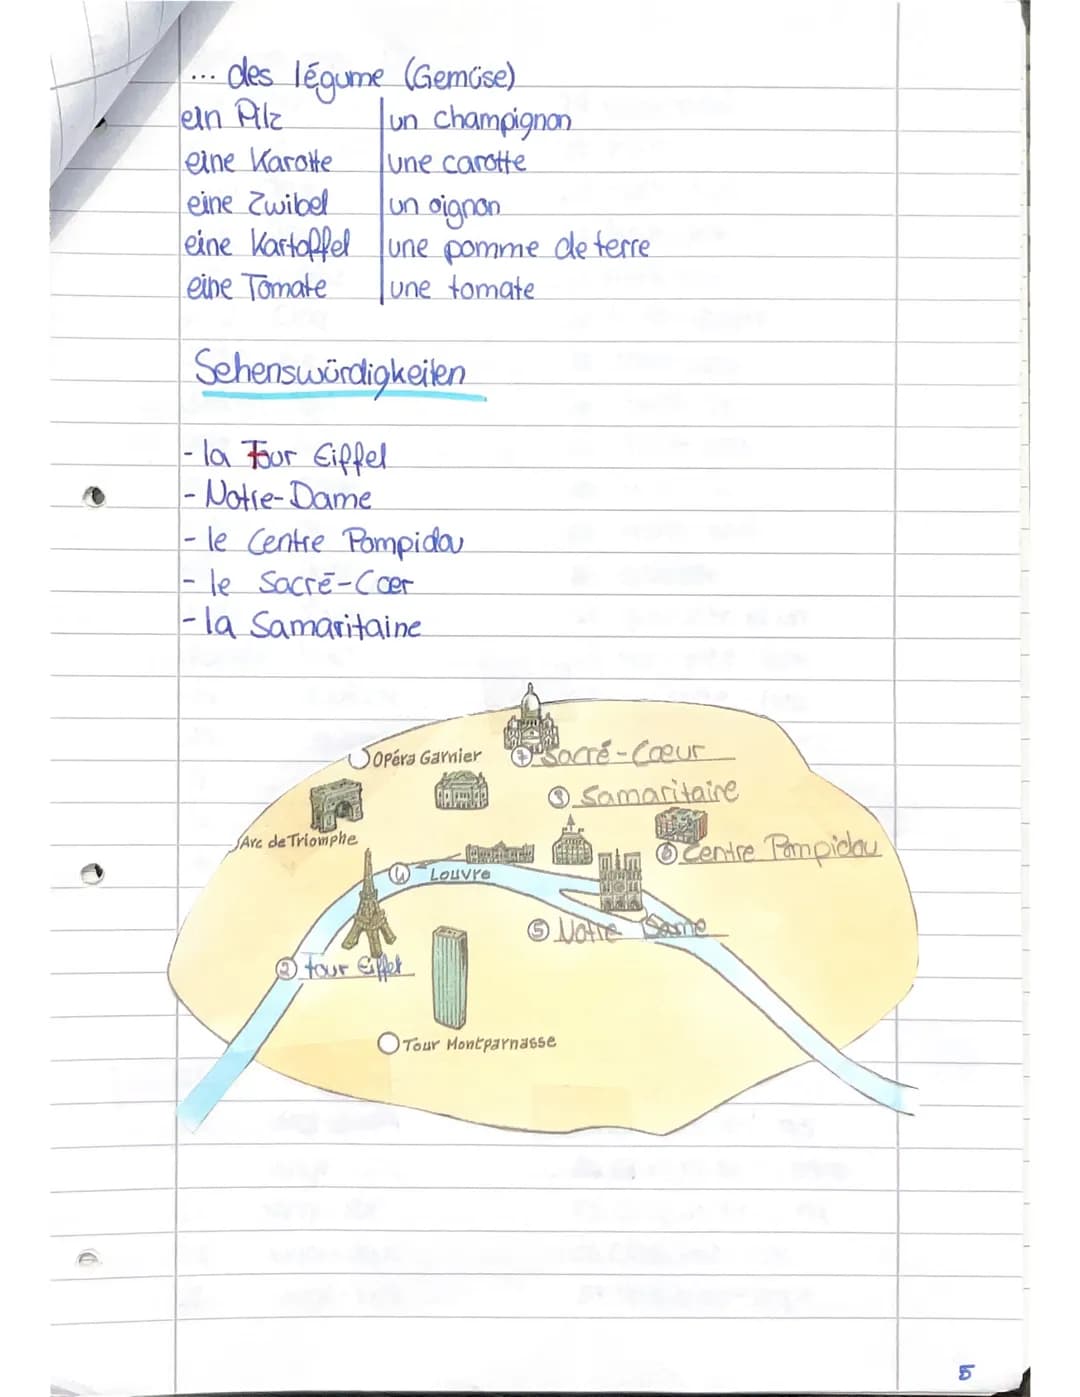 ... des légume (Gemüse)
ein Pilz un champignon
eine Karotte une carotte
eine Zwibel un oignon
eine Kartoffel une pomme de terre
eine Tomate une tomate
Sehenswürdigkeiten
- la Tour Eiffel
- Notre-Dame
- le Centre Pompidou
- le Sacré-Coer
- la Samaritaine
Opéra Garnier
7 Sacré-Cœur
3 Samaritaire
Arc de Triomphe
6 Centre Pompidou
4 Louvre
5 Notre Dame
2 tour Eiffel
Tour Montparnasse
5